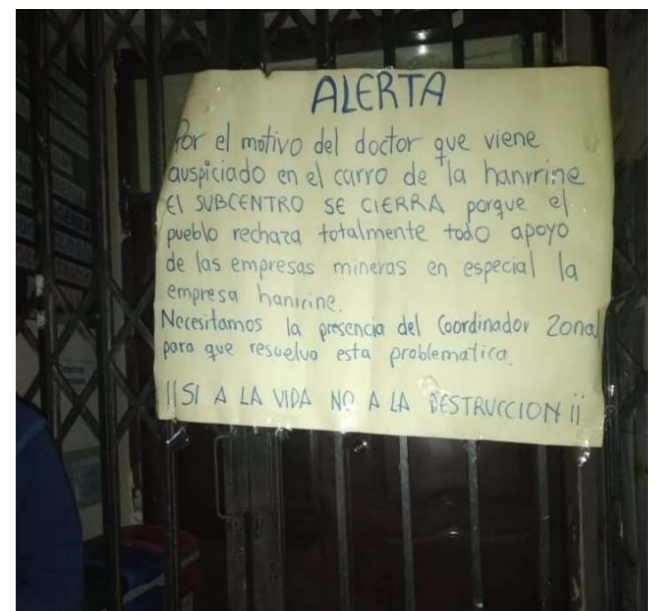 ALERTA
Por el motivo del doctor que viene
auspiciado en el carro de la hanrrine
El SUBCENTRO SE CIERRA porque el
pueblo rechaza totalmente todo apoyo
de las empresas mineras en especial la
empresa hanrrine.
Necesitamos la presencia del Coordinador Zonal
para que resuelva esta problematica.
¡¡SI A LA VIDA NO A LA DESTRUCCION ¡¡